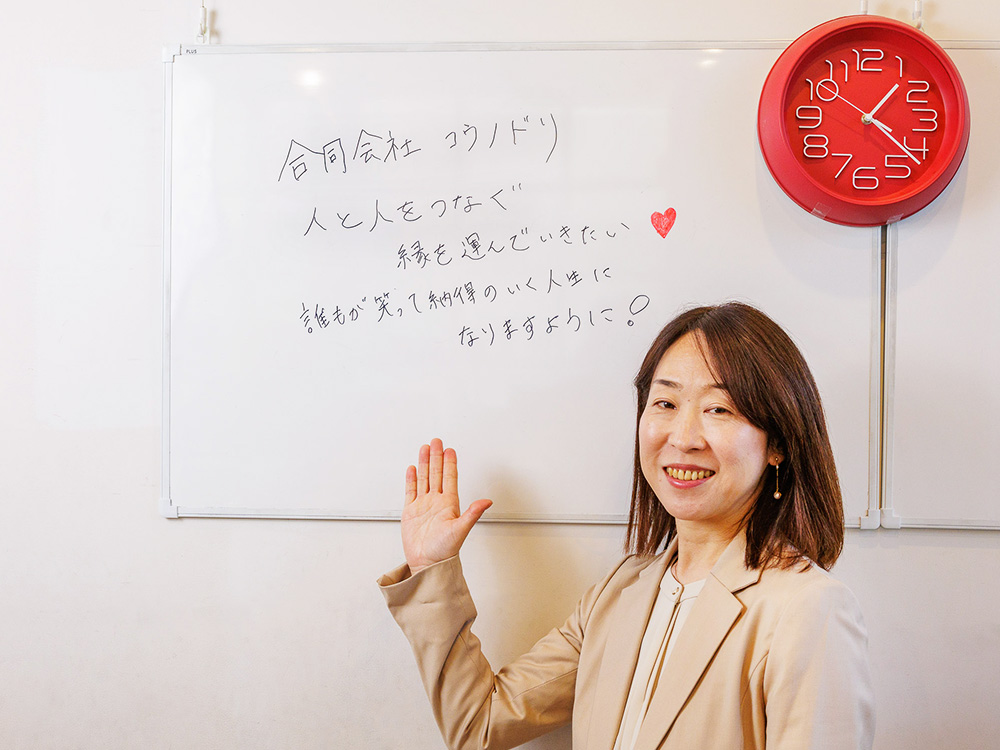 PLUS
合同会社 コウノドリ
人と人をつなぐ
縁を運んでいきたい
誰もが笑って納得のいく人生に
なりますように!
12
11 1
10 2
9 3
8 4
7 5
6